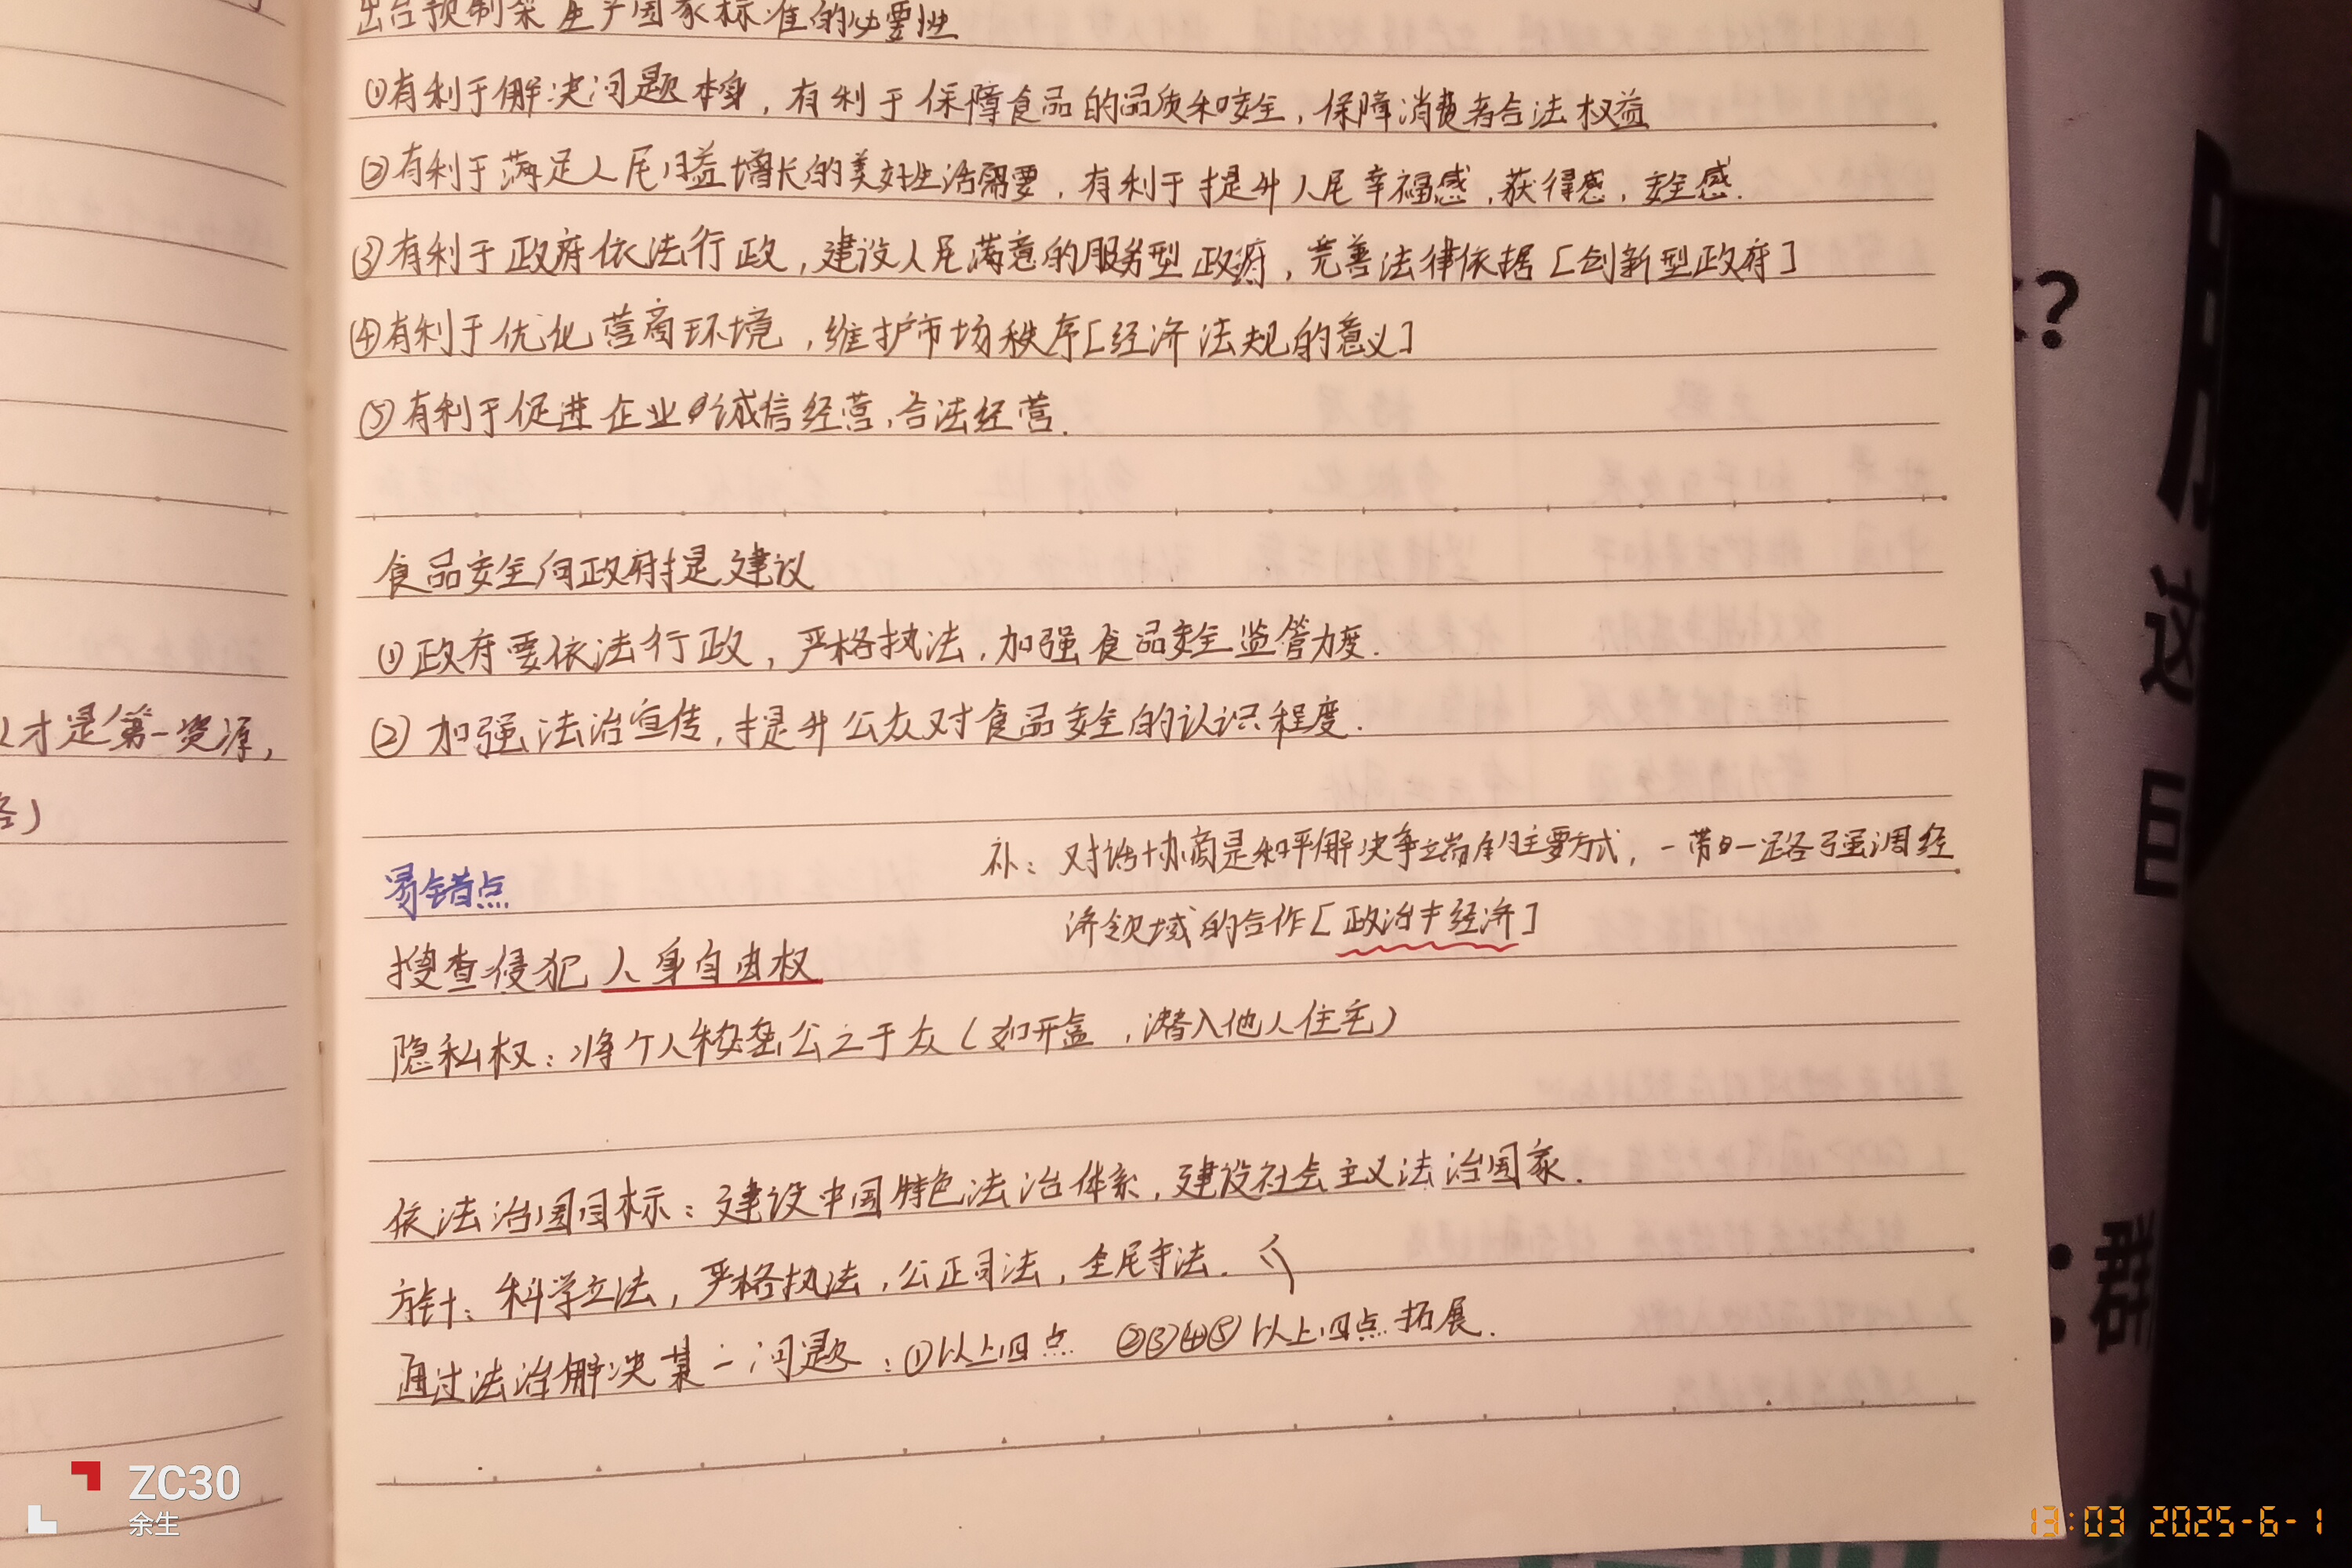 出台预制菜生产国家标准的必要性
①有利于解决问题本身，有利于保障食品的品质和安全，保障消费者合法权益
②有利于满足人民日益增长的美好生活需要，有利于提升人民幸福感，获得感，安全感.
③有利于政府依法行政，建设人民满意的服务型政府，完善法律依据[创新型政府]
④有利于优化营商环境，维护市场秩序[经济法规的意义]
⑤有利于促进企业诚信经营，合法经营.
食品安全向政府提建议
①政府要依法行政，严格执法，加强食品安全监管力度.
②加强法治宣传，提升公众对食品安全的认识程度.
人才是第一资源，
补：对话协商是和平解决争端的主要方式，一带一路强调经
济领域的合作[政治≠经济]
易错点
搜查侵犯人身自由权
隐私权：将个人公之于众(如开盒，潜入他人住宅)
依法治国目标：建设中国特色法治体系，建设社会主义法治国家.
方针：科学立法，严格执法，公正司法，全民守法.
通过法治解决某一问题：①以上四点 ②③④⑤以上四点拓展.
?
这
群
ZC30
余生
13:03 2025-6-1